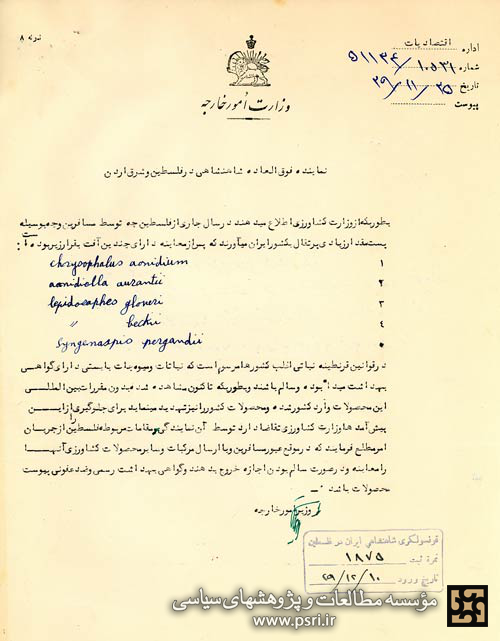 نمره ۸
اداره اقتصادیات
شماره ۵۱۱۳۴/۱۰۵۳۱
تاریخ ۲۹/۱۱/۲۵
پیوست
وزارت امور خارجه
نماینده فوق العاده شاهنشاهی در فلسطین و شرق اردن
بطوریکه از وزارت کشاورزی اطلاع میدهند در سال جاری از فلسطین چه توسط مسافرین و چه بوسیله
پست مقدار زیادی پرتقال بکشور ایران میآورند که پس از معاینه دارای چندین آفت بقرار زیر بوده است:
۱ chrysophalus aonidium
۲ aonidiella aurantii
۳ lepidosaphes gloveri
۴ " beckii
۵ Syngenaspis pergandii
در قوانین قرنطینه نباتی اغلب کشورها مرسوم است که نباتات و میوه جات بایستی دارای گواهی
بهداشت مبدأ بوده و سالم باشند و بطوریکه تاکنون مشاهده شده بدون مقررات بین المللی
این محصولات وارد کشور شده و محصولات کشور را نیز تهدید مینماید برای جلوگیری از این
پیش آمدها وزارت کشاورزی تقاضا دارد توسط آن نمایندگی مقامات مربوطه فلسطین را از جریان
امر مطلع فرمایند که در موقع عبور مسافرین و یا ارسال مرکبات و سایر محصولات کشاورزی آنها
را معاینه و در صورت سالم بودن اجازه خروج بدهند و گواهی بهداشت رسمی و ضد عفونی پیوست
محصولات باشد.
وزیر امور خارجه
قونسولگری شاهنشاهی ایران در فلسطین
نمرۀ ثبت ۱۸۷۵
تاریخ ورود ۲۹/۱۲/۱۰
مؤسسه مطالعات و پژوهشهای سیاسی
www.psri.ir